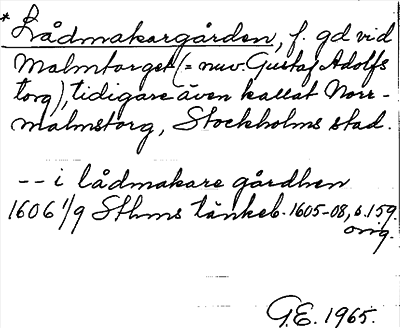 * Lådmakargården, f. gd vid
Malmtorget (= nuv. Gustaf Adolfs
torg), tidigare även kallat Norr-
malmstorg, Stockholms stad.
-- i lådmakare gårdhen
1606 1/9 Sthms tänkeb. 1605-08, s. 159.
orig.
G.E. 1965.